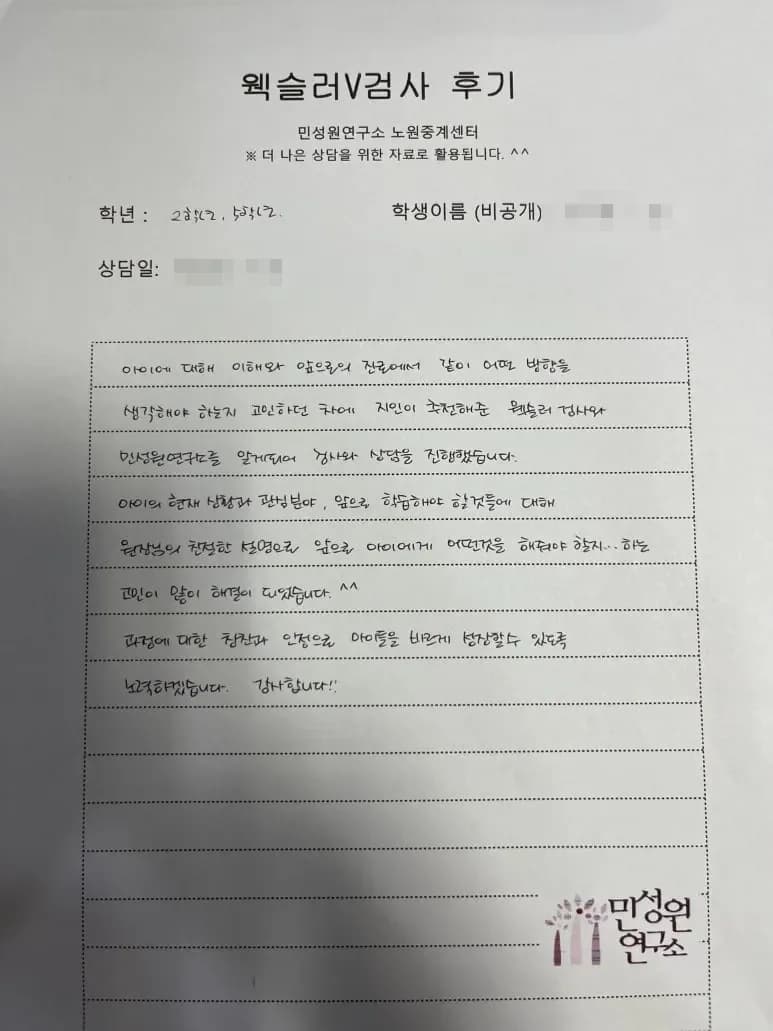 웩슬러V검사 후기
민성원연구소 노원중계센터
※ 더 나은 상담을 위한 자료로 활용됩니다. ^^
학년 : 2학년, 5학년. 학생이름 (비공개)
상담일:
아이에 대해 이해와 앞으로의 진로에서 같이 어떤 방향을
생각해야 하는지 고민하던 차에 지인이 추천해준 웩슬러 검사와
민성원연구소를 알게되어 검사와 상담을 진행했습니다.
아이의 현재 상황과 관심분야, 앞으로 학습해야 할것들에 대해
원장님의 친절한 설명으로 앞으로 아이에게 어떤것을 해줘야 할지... 하는
고민이 많이 해결이 되었습니다. ^^
과정에 대한 칭찬과 인정으로 아이들을 바르게 성장할수 있도록
노력하겠습니다. 감사합니다!!
민성원
연구소